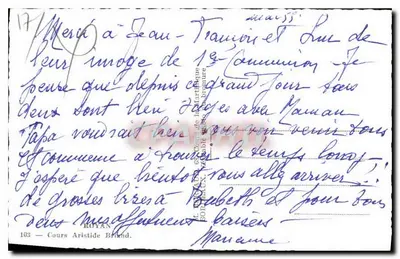 17/
mars 55
Merci à Jean-François et Luc de
leur image de 1re Communion. Je
pense que depuis ce grand jour tous
deux sont bien sages avec Maman
Papa voudrait bien vous voir venir tous
et commence à trouver le temps long
J'espère que bientôt vous allez arriver!
de grosses bises à et pour tous
deux mes affectueux baisers
Marianne
ROYAN
103 — Cours Aristide Briand.